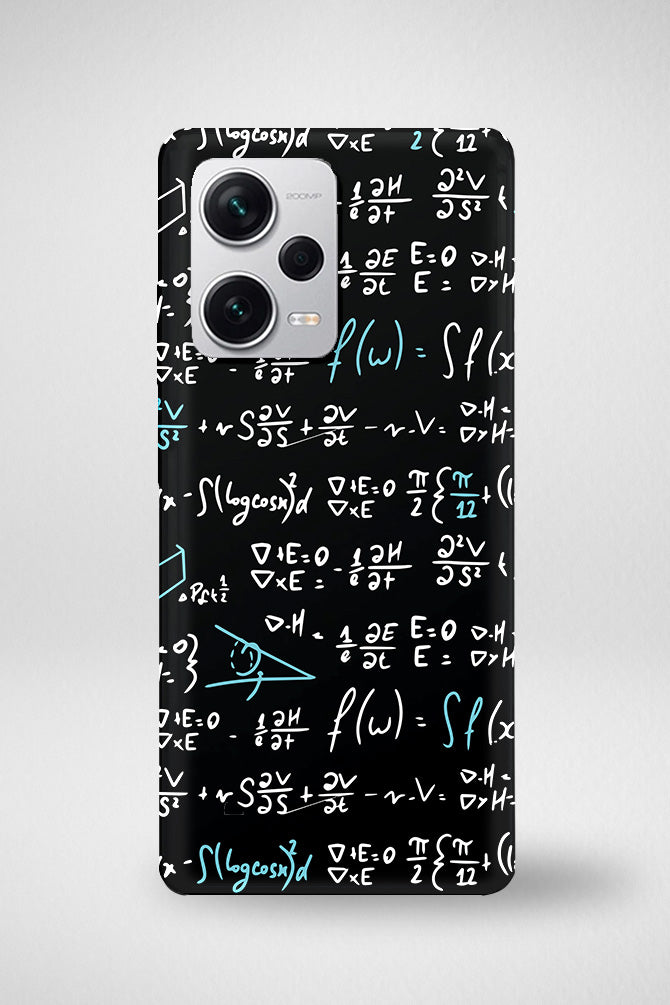 ∫(logcosx)d ∇×E 2 { 12 +
200MP 1/e ∂H/∂t ∂²V/∂S²
1/e ∂E/∂t E=0 ∇·H
E = ∇×H
∇+E= - 1/e ∂H/∂t f(w) = ∫f(x
∇×E
V/S² + r S ∂V/∂S + ∂V/∂t - r.V = ∇·H =
∇×H=
x - ∫(logcosx)²d ∇+E=0 π/2 { π/12 + ((
∇×E
∇+E=0 - 1/e ∂H/∂t ∂²V/∂S²
∇×E =
ΔPf+1/2
∇·H = 1/e ∂E/∂t E=0 ∇·H
E = ∇×H
∇+E=0 - 1/e ∂H/∂t f(w) = ∫f(x
∇×E
V/S² + r S ∂V/∂S + ∂V/∂t - r.V = ∇·H =
∇×H=
x - ∫(logcosx)²d ∇+E=0 π/2 { π/12 + ((
∇×E